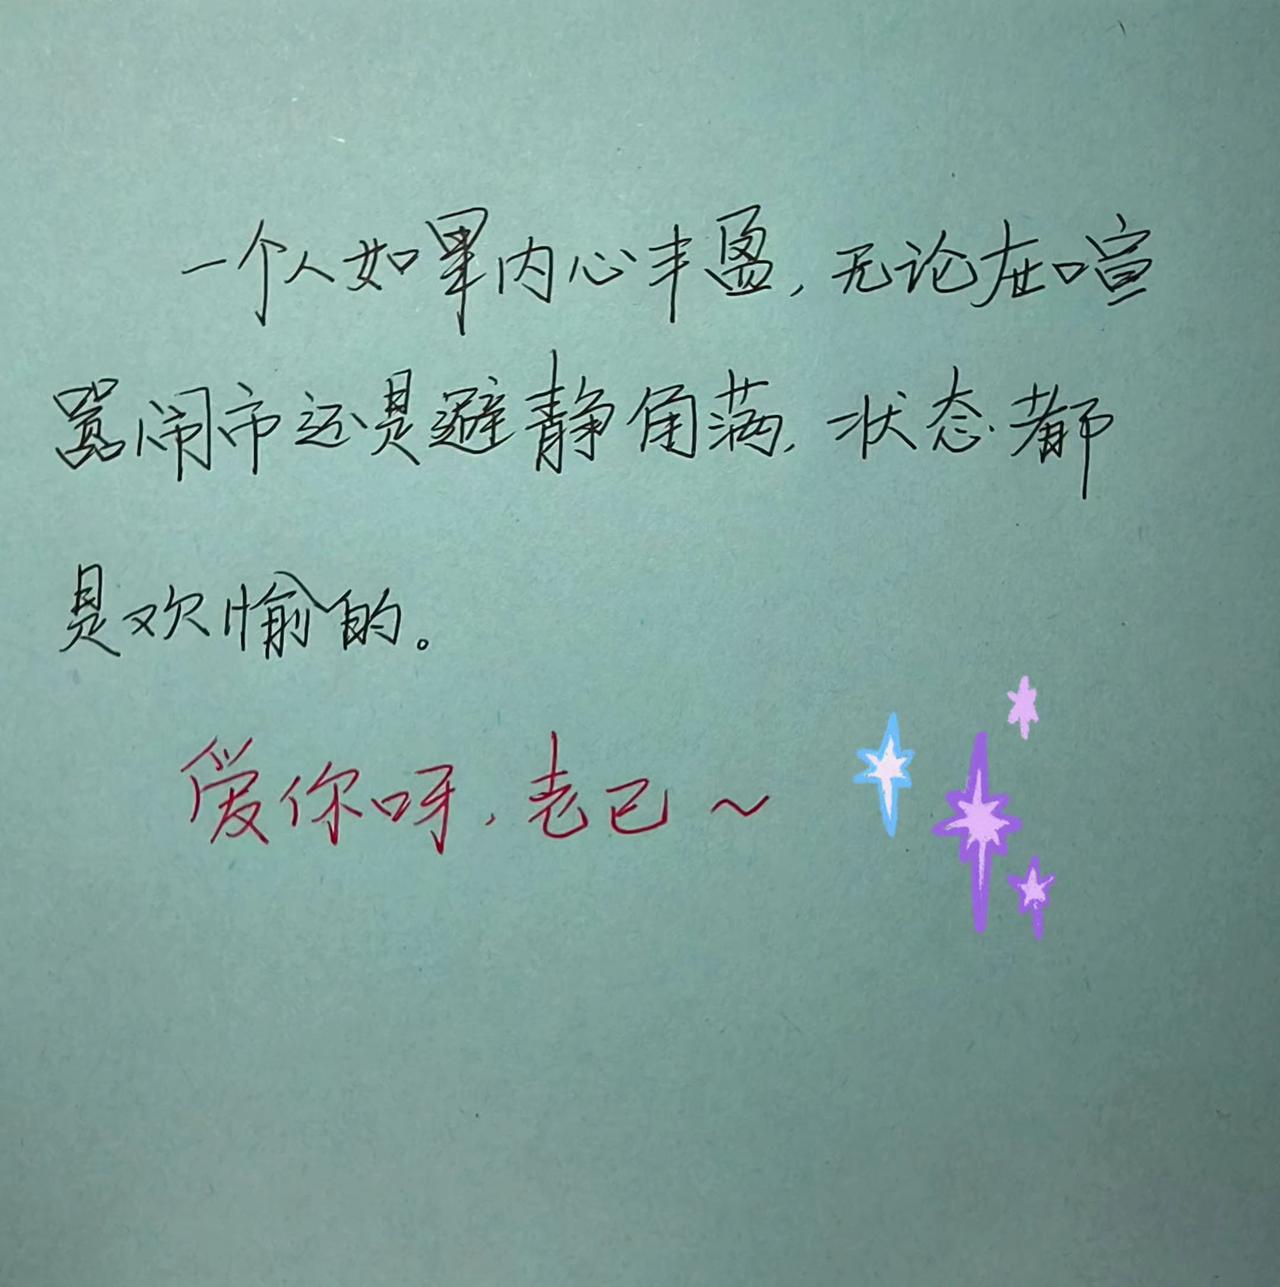 一个人如果内心丰盈,无论在喧
嚣闹市还是避静角满,状态都
是欢愉的。
爱你呀,老己~